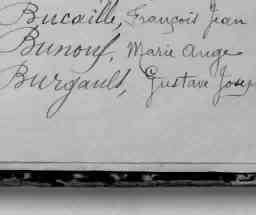 Bucaille, François Jean
Bunouf, Marie Ange
Burgault, Gustave Josep